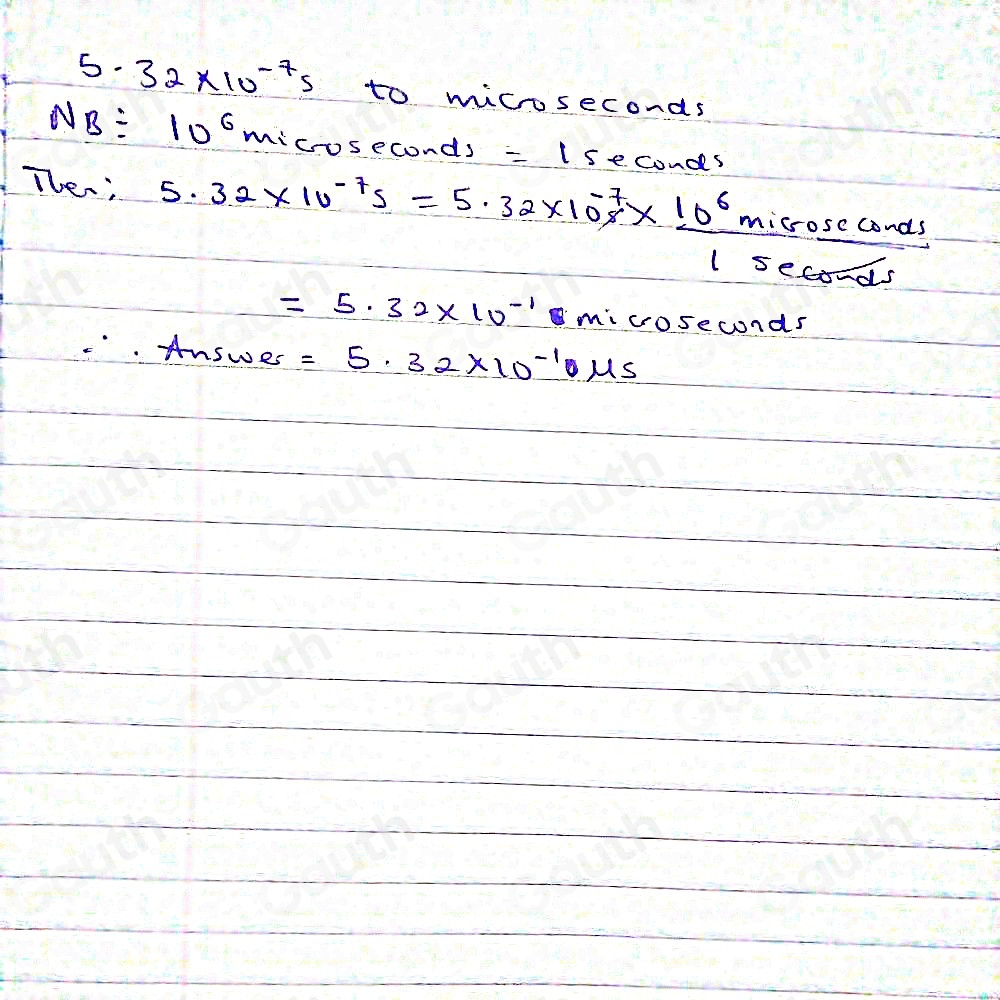 5.32×10⁻⁷s to microseconds
NB: 10⁶ microseconds = 1 seconds
Then; 5.32×10⁻⁷s = 5.32×10⁻⁷s × 10⁶ microseconds
1 seconds
= 5.32×10⁻¹ microseconds
∴ Answer = 5.32×10⁻¹ μs
Gauth